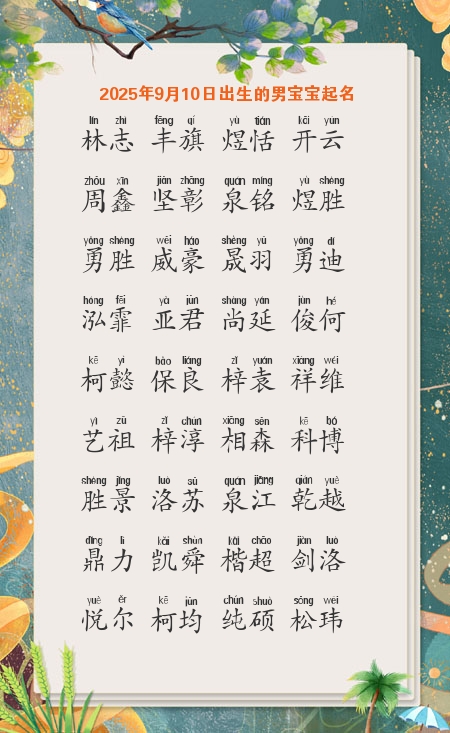 2025年9月10日出生的男宝宝起名
lín zhì fēng qí yù tián kāi yún
林志 丰旗 煜恬 开云
zhōu xīn jiān zhāng quán míng yù shèng
周鑫 坚彰 泉铭 煜胜
yǒng shèng wēi háo shèng yǔ yǒng dí
勇胜 威豪 晟羽 勇迪
hóng fēi yà jūn shàng yán jùn hé
泓霏 亚君 尚延 俊何
kē yì bǎo liáng zǐ yuán xiáng wéi
柯懿 保良 梓袁 祥维
yì zǔ zǐ chún xiāng sēn kē bó
艺祖 梓淳 相森 科博
shèng jǐng luò sū quán jiāng qián yuè
胜景 洛苏 泉江 乾越
dǐng lì kǎi shùn kǎi chāo jiàn luò
鼎力 凯舜 楷超 剑洛
yuè ěr kē jūn chún shuò sōng wěi
悦尔 柯均 纯硕 松玮